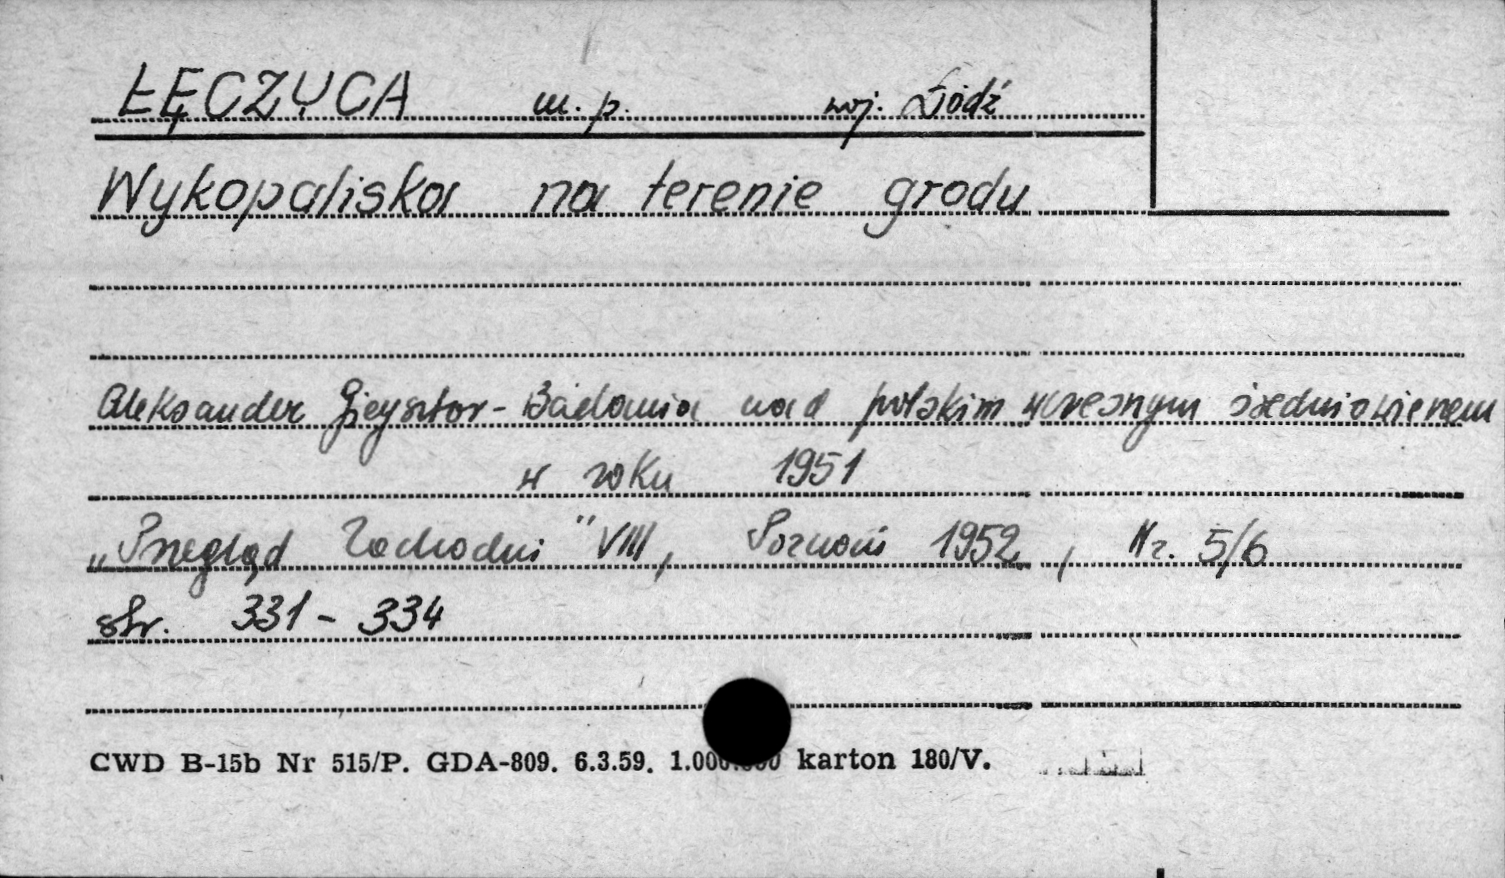 ŁĘCZYCA m. p. woj. Łódź
Wykopaliska na terenie grodu
Aleksander Gieysztor - Badania nad polskim wczesnym średniowieczem
w roku 1951
„Przegląd Zachodni" VIII, Poznań 1952, Nr. 5/6
str. 331 - 334
CWD B-15b Nr 515/P. GDA-809. 6.3.59. 1.000.000 karton 180/V.